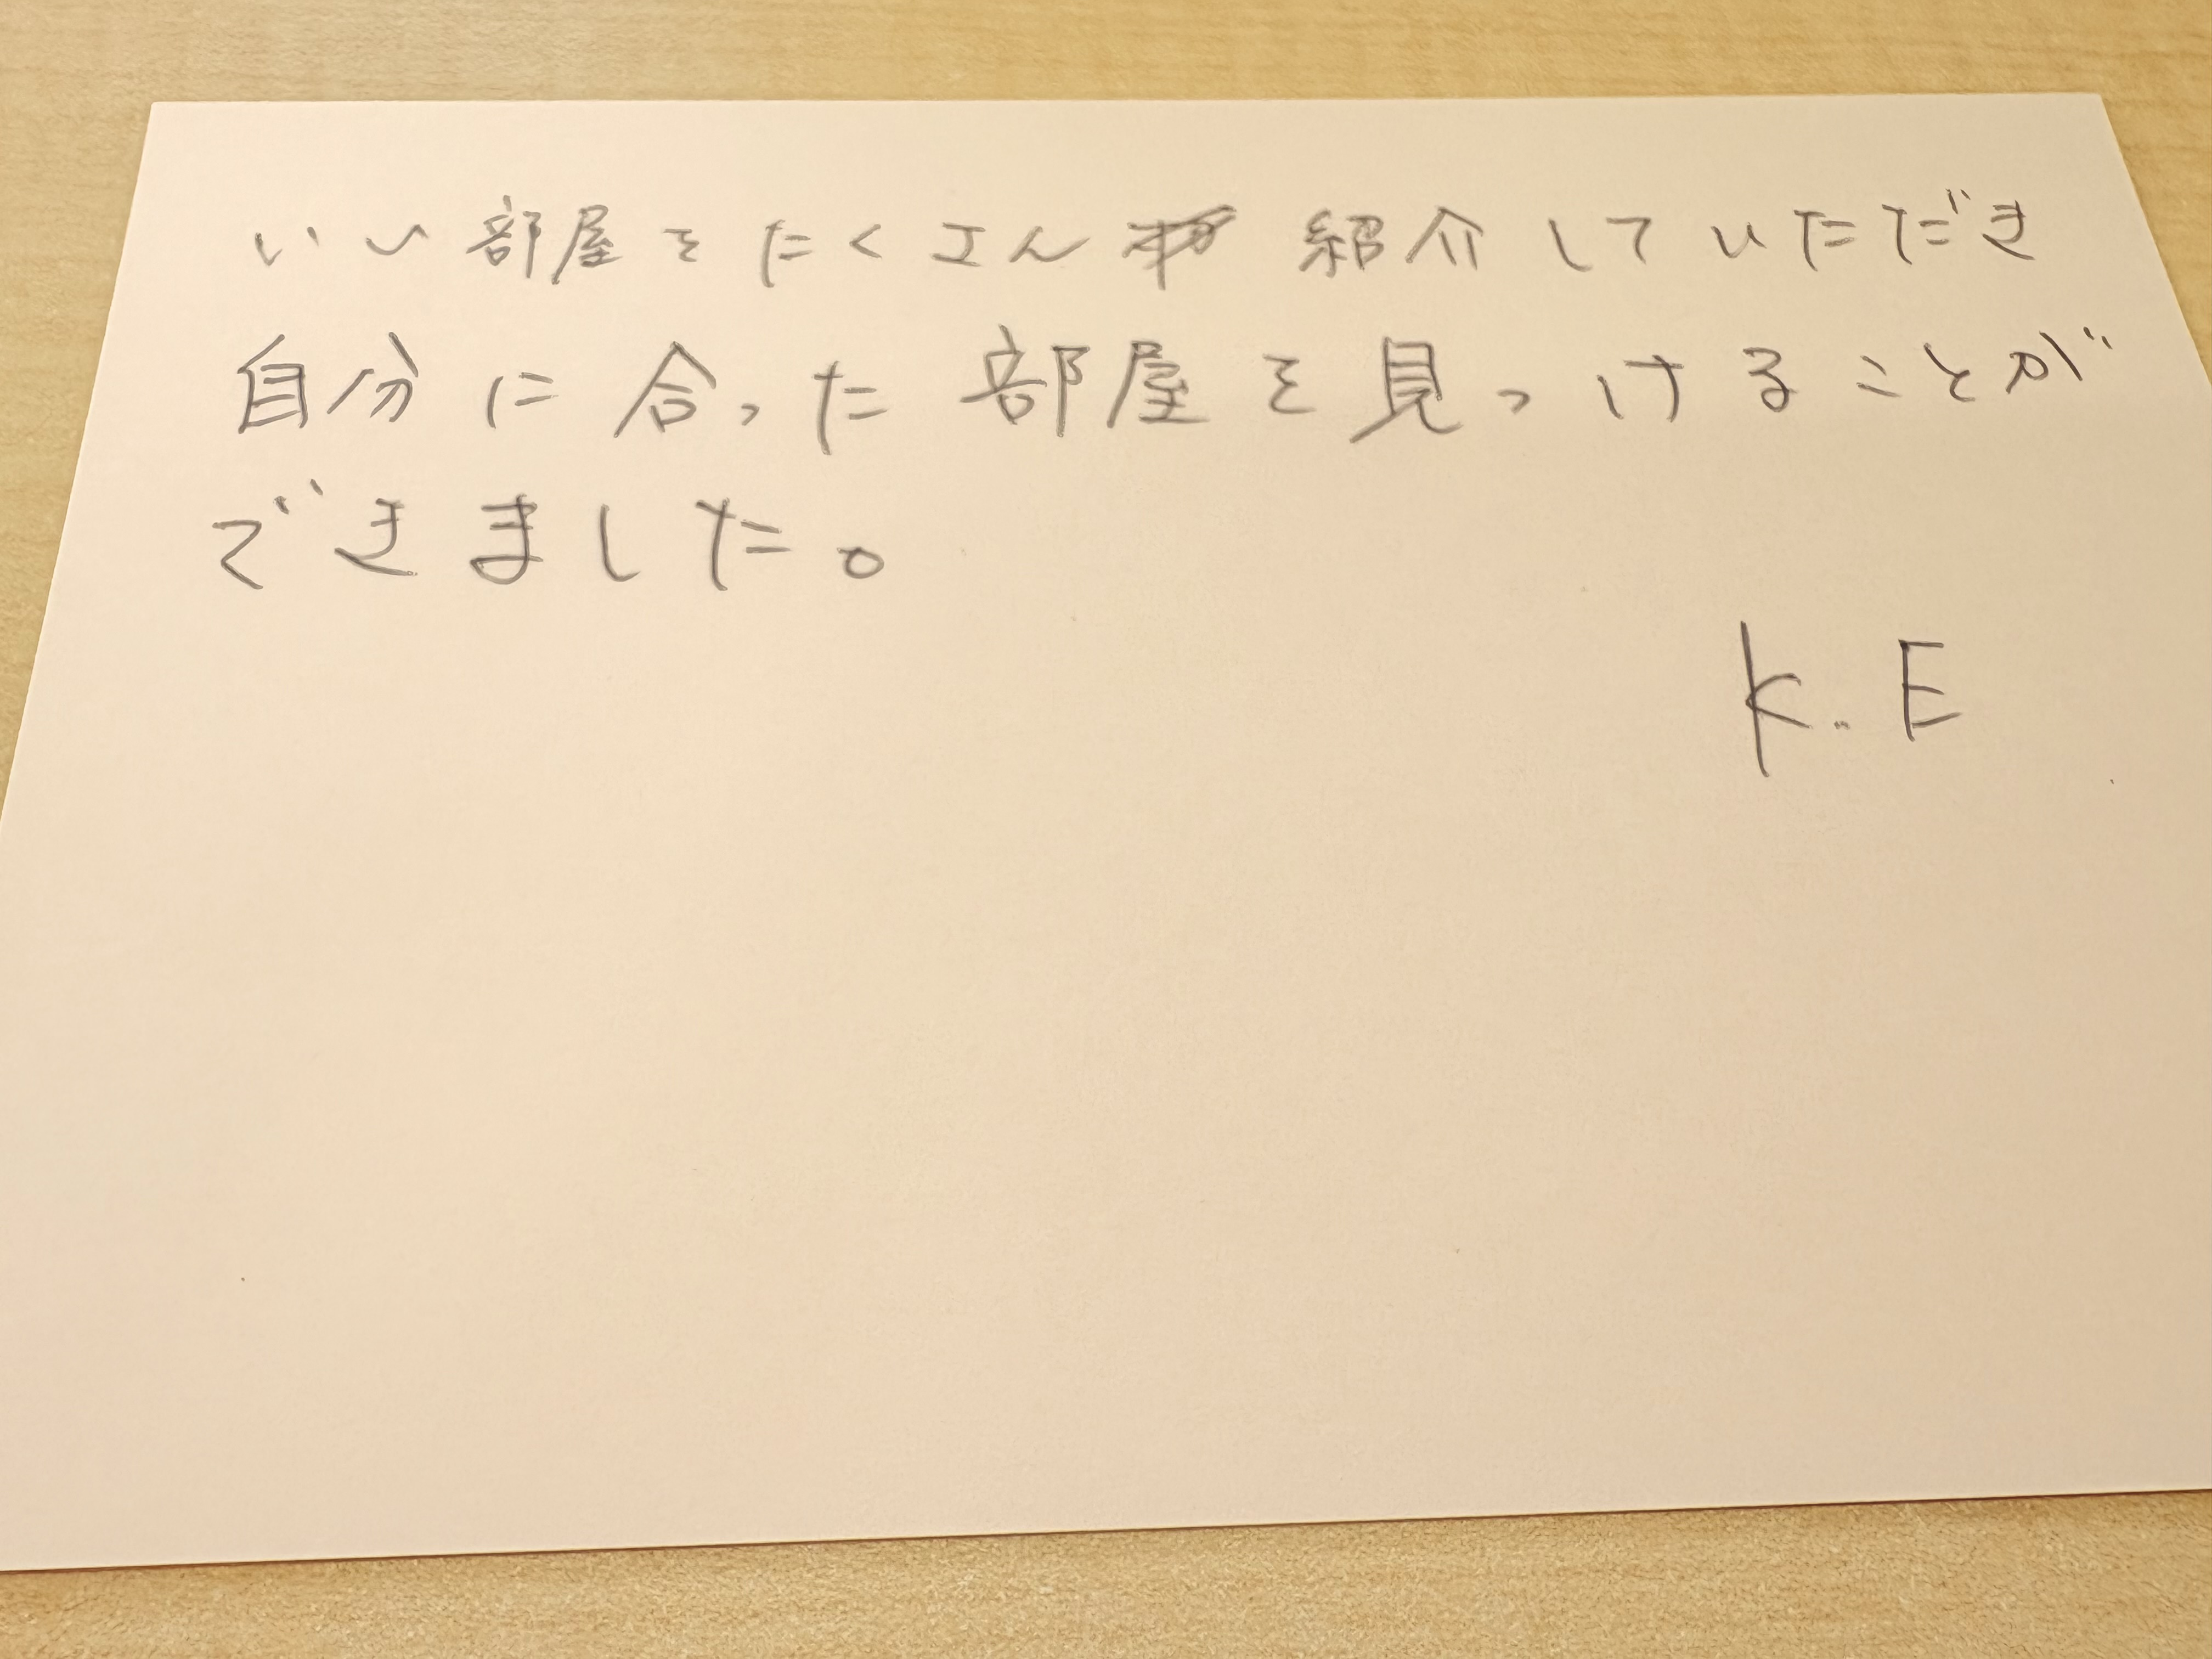 いい部屋をたくさん紹介していただき
自分に合った部屋を見つけることが
できました。
K.E